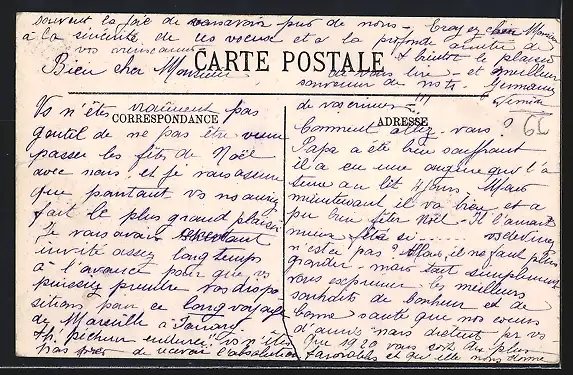 Bien cher Monsieur
Vs n'êtes vraiment pas
gentil de ne pas être venu
passer les fêts de Noël
avec nous et je vous assure
que pourtant vs ns auriez
fait le plus grand plaisir
Je vous avais
invité assez longtemps
à l'avance pour que vs
puissiez prendre vos dispo-
sitions pour ce long voyage
de Marseille à
pécheur endurci vs n'êtes
pas prêt de recevoir l'absolution
CARTE POSTALE
CORRESPONDANCE
ADRESSE
de vos ennuis!!!
Comment allez vous?
Papa a été bien souffrant
il a eu une angine qui l'a
tenu au lit 4 jours. Mais
maintenant il va bien et a
pu bien fêter Noël - Il l'aurait
mieux fêté si ........ vs devinez
n'est ce pas? Mais, il ne faut plus
gronder - mais tout simplement
vous exprimer les meilleurs
souhaits de bonheur et de
bonne santé que nos coeurs
d'amis nous dictent pr vs -
Que 1920 vous soit des plus
favorables et qu'elle nous donne
souvent la joie de vous avoir près de nous - Croyez cher Monsieur
à la sincérité de ces voeux et à la profonde amitié de
vos
à bientôt le plaisir
de vous lire - et meilleur
souvenir de nots. Germaine
62